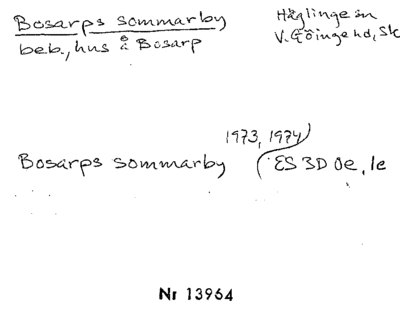 Bosarps sommarby
Häglinge sn
V. Göinge hd, Sk
beb., hus å Bosarp
1973, 1974
Bosarps sommarby
ES 3D 0e, 1e
Nr 13964